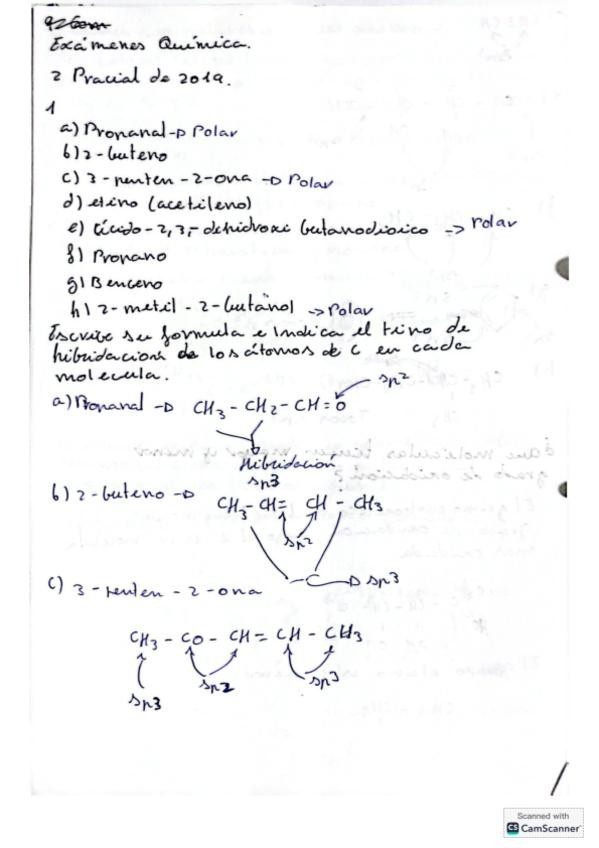 Exámenes Química.
2 Pracial de 2019.
1
a) Propanal → Polar
b) 2-buteno
c) 3-penten-2-ona → Polar
d) etino (acetileno)
e) ácido-2,3,-dehidroxi butanodioico → Polar
f) Propano
g) Benceno
h) 2-metil-2-butanol → Polar
Escribe su formula e indica el tipo de
hibridacions de los átomos de C en cada
molecula.
a) Propanal → CH3 - CH2 - CH = O
sp2
Hibridacion
sp3
b) 2-buteno → CH3 - CH = CH - CH3
sp2
- C → sp3
c) 3-penten-2-ona
CH3 - CO - CH = CH - CH3
sp3 sp2 sp3
Scanned with
CS CamScanner